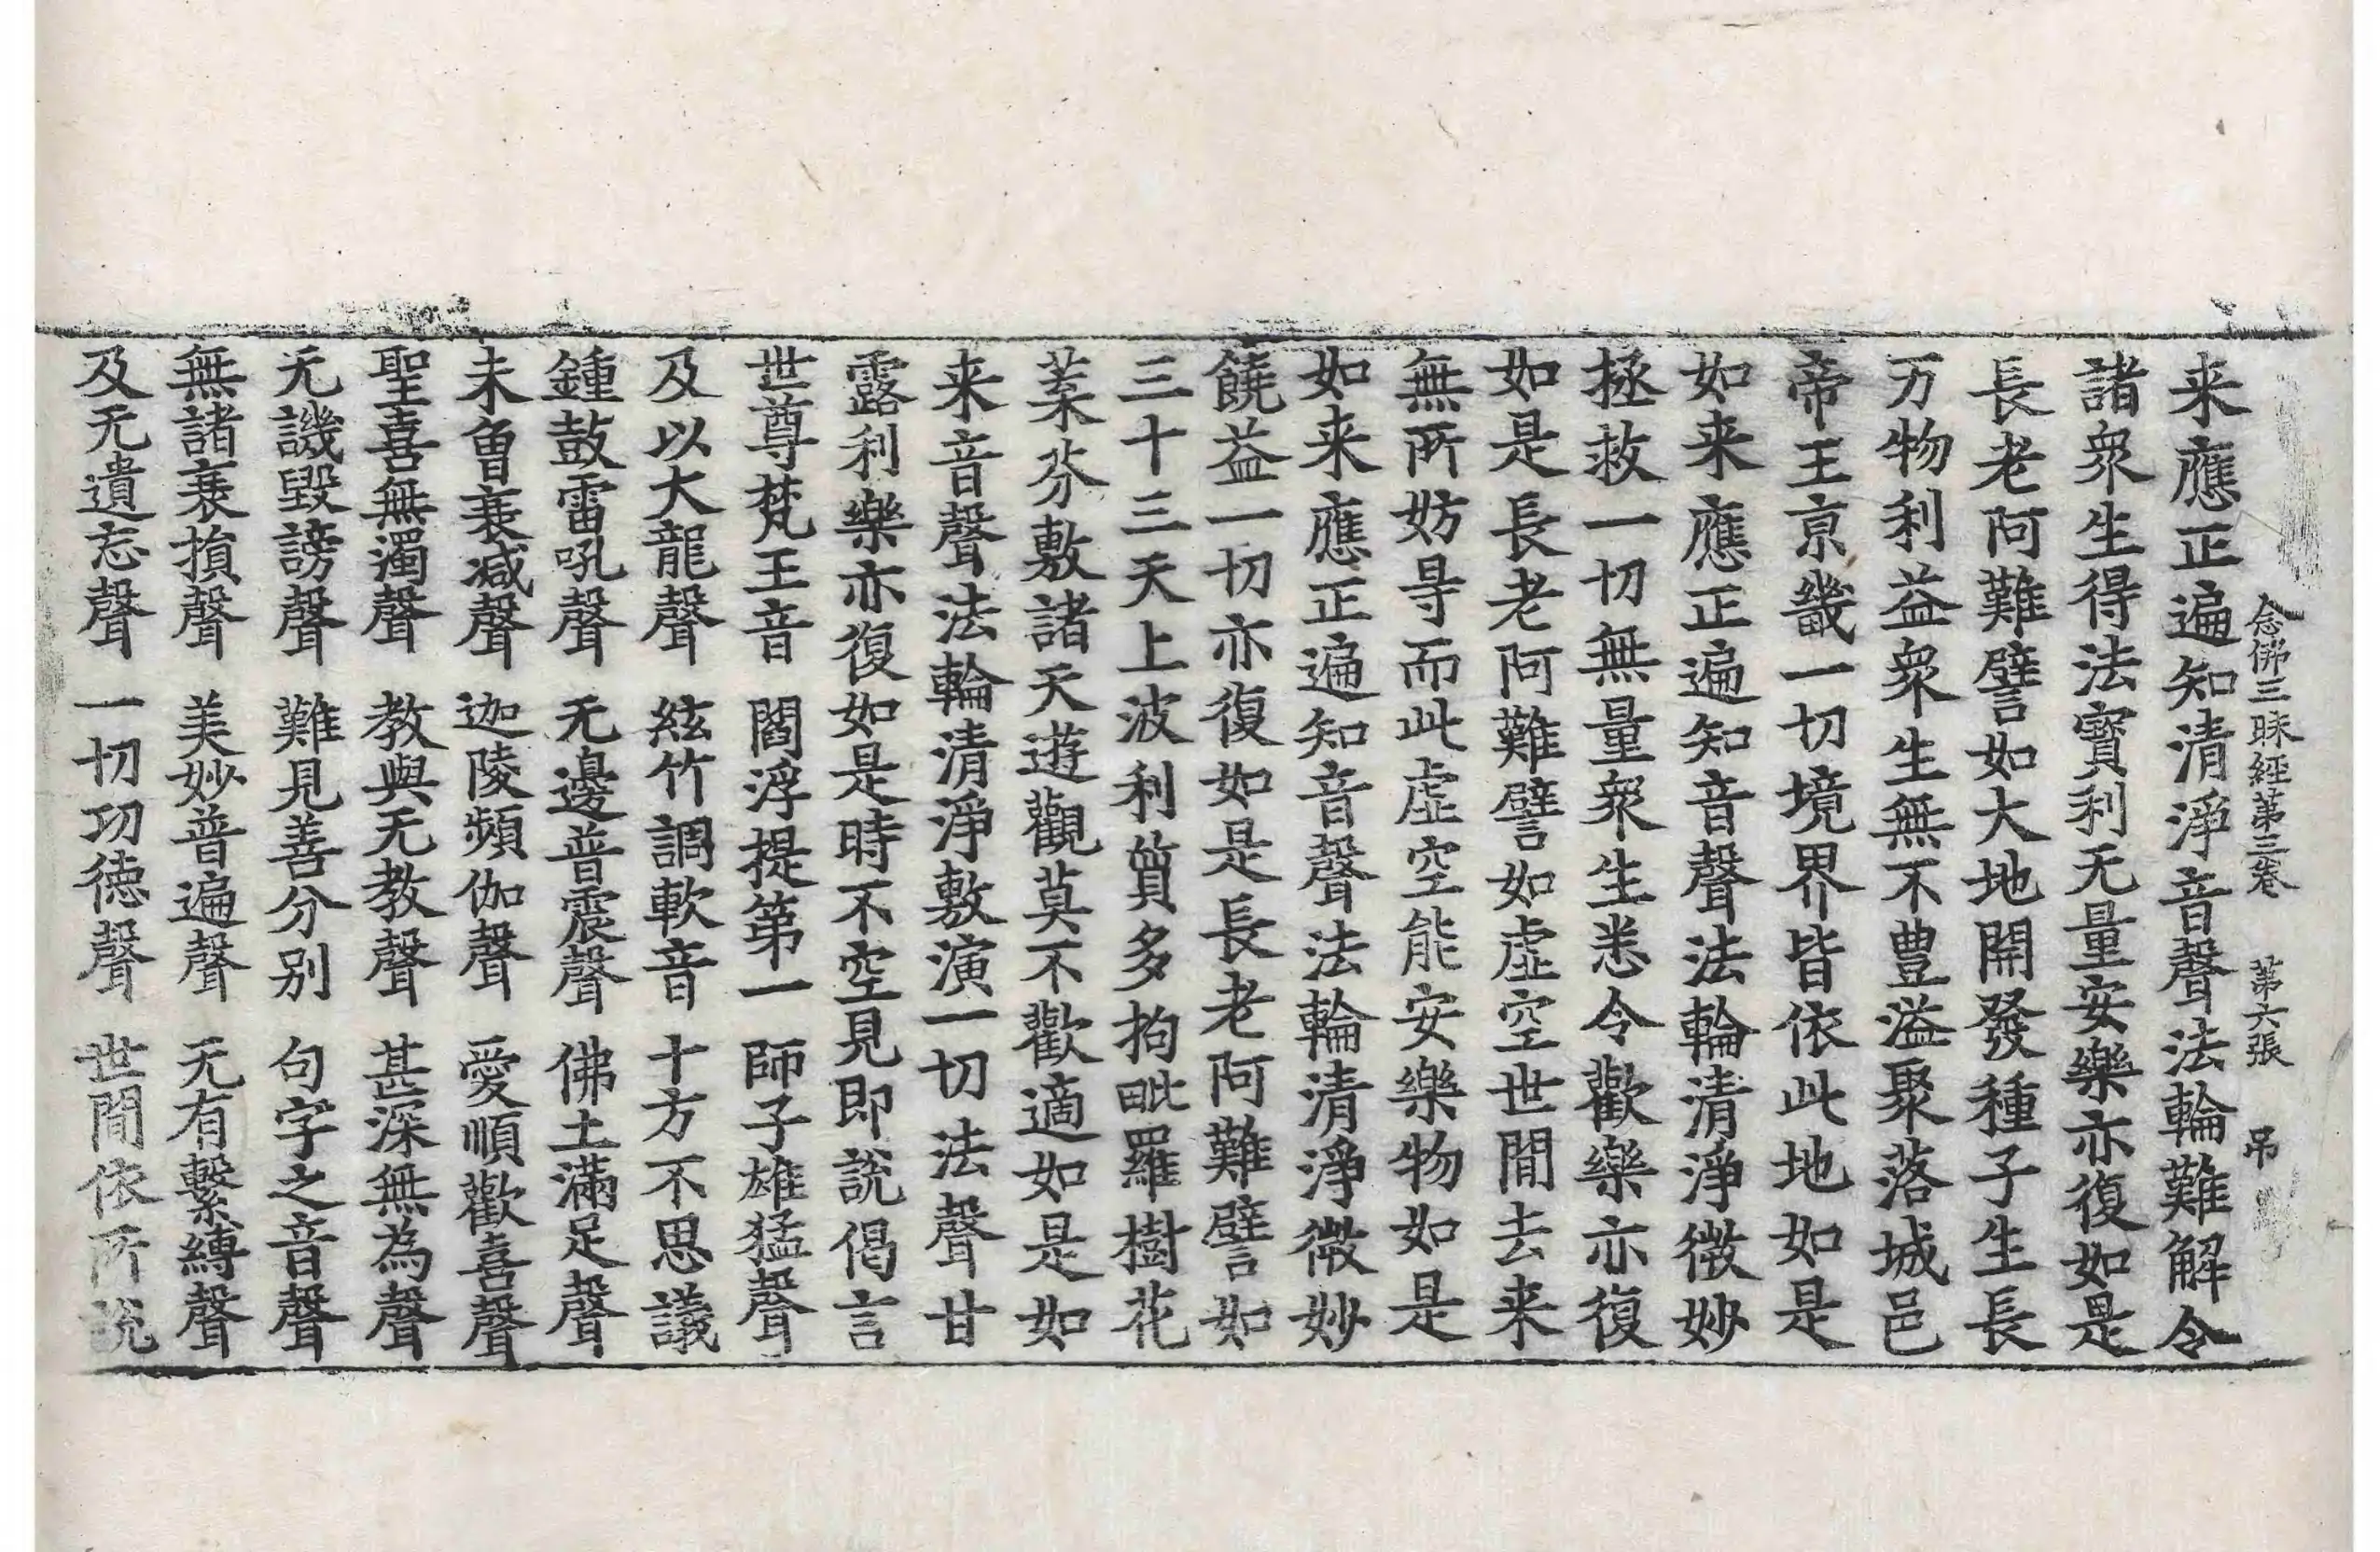 念佛三昧經第三卷　第六張　弔
来應正遍知清淨音聲法輪難解令
諸衆生得法寳利无量安樂亦復如是
長老阿難譬如大地開發種子生長
万物利益衆生無不豊溢聚落城邑
帝王亰畿一切境界皆依此地如是
如来應正遍知音聲法輪清淨微妙
拯救一切無量衆生悉令歡樂亦復
如是長老阿難譬如虛空世間去来
無所妨㝵而此虛空能安樂物如是
如来應正遍知音聲法輪清淨微妙
饒益一切亦復如是長老阿難譬如
三十三天上波利質多拘毗羅樹花
蘂芬敷諸天遊觀莫不歡適如是如
来音聲法輪清淨敷演一切法聲甘
露利樂亦復如是時不空見即說偈言
世尊梵王音　閻浮提第一　師子雄猛聲
及以大龍聲　絃竹調軟音　十方不思議
鍾鼓雷吼聲　无邊普震聲　佛土滿足聲
未曾衰減聲　迦陵頻伽聲　愛順歡喜聲
聖喜無濁聲　教與无教聲　甚深無為聲
无譏毀謗聲　難見善分别　句字之音聲
無諸衰損聲　美妙普遍聲　无有繫縛聲
及无遺忘聲　一切功德聲　世間依所說